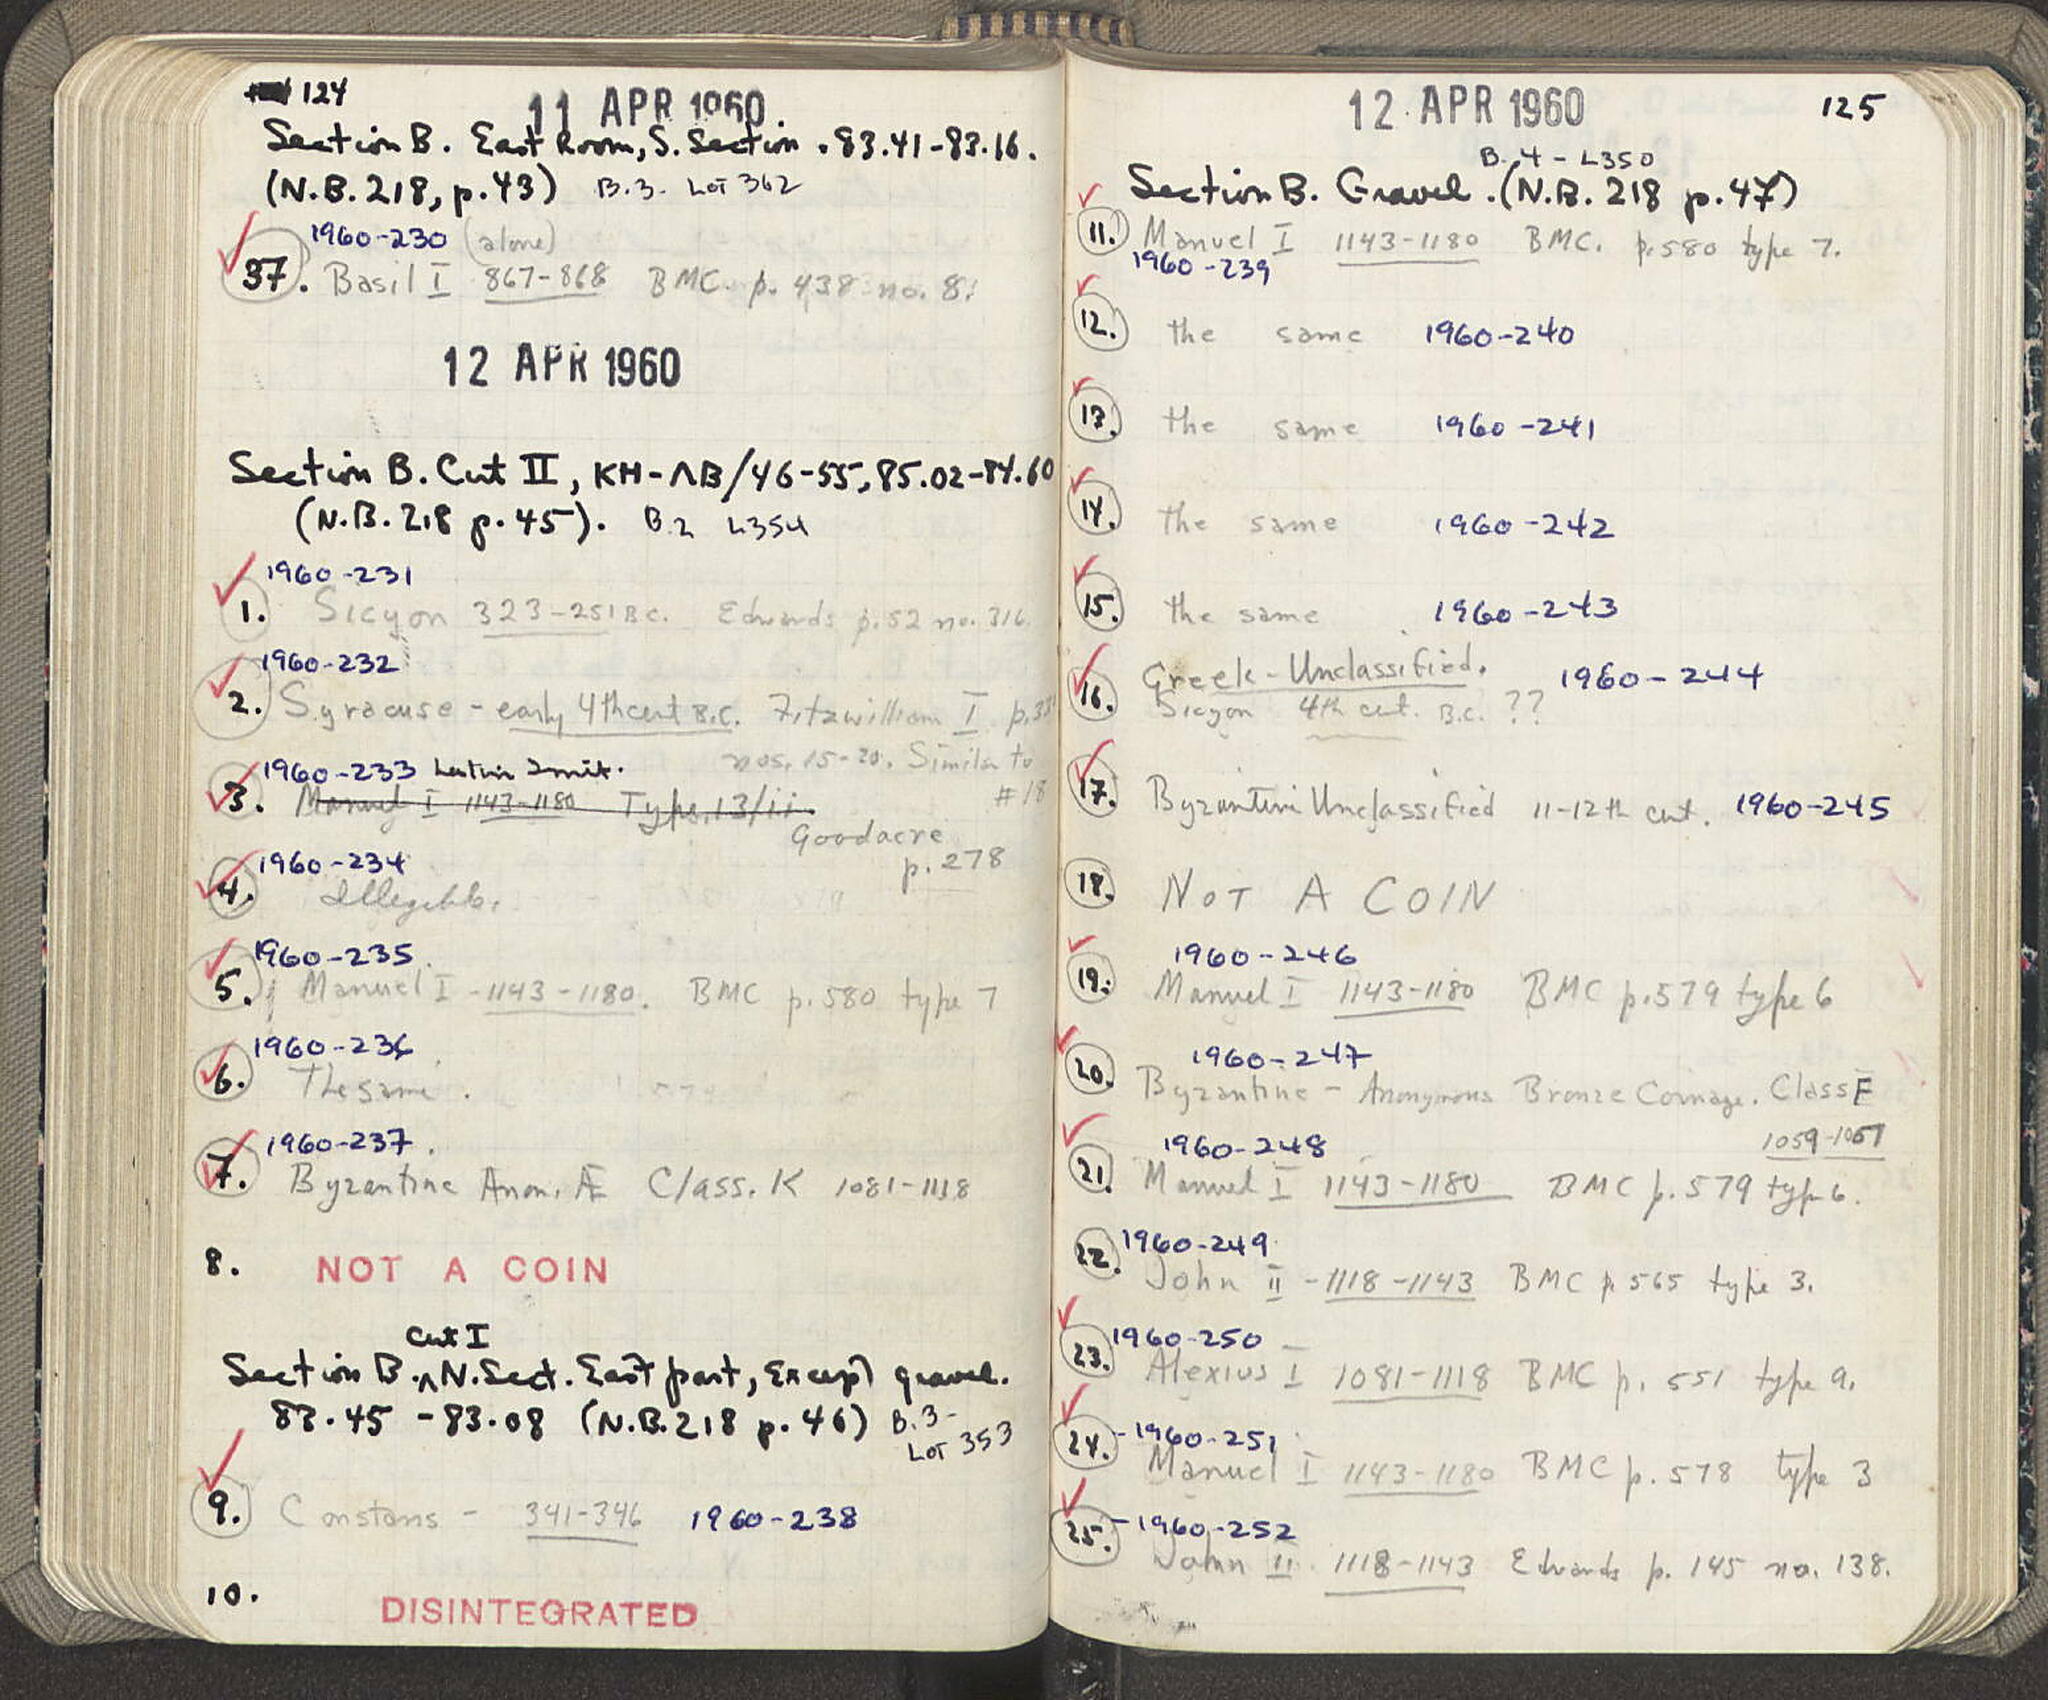 124
11 APR 1960.
Section B. East Room, S. Section. 83.41-83.16.
(N.B. 218, p.43) B.3- Lot 362
1960-230 (alone)
37. Basil I 867-868 BMC. p. 438 no. 8.
12 APR 1960
Section B. Cut II, KH-ΛB/46-55, 85.02-84.60
(N.B. 218 p.45). B.2 L354
1960-231
1. Sicyon 323-251 B.C. Edwards p.52 no. 316
1960-232
2. Syracuse - early 4th cent B.C. Fitzwilliam I p.33
nos. 15-20. Similar to
#18
1960-233 Latin Imit.
3. Manuel I 1143-1180 Type 13/ii
Goodacre
p. 278
1960-234
4. Illegible.
1960-235
5. Manuel I - 1143-1180. BMC p.580 type 7
1960-236
6. The same.
1960-237.
7. Byzantine Anon. Æ Class. K 1081-1118
8. NOT A COIN
Cut I
Section B. ^ N. Sect. East part, Except gravel.
83.45 - 83.08 (N.B. 218 p. 46) B.3-
Lot 353
9. Constans - 341-346 1960-238
10. DISINTEGRATED
12 APR 1960
125
B.4 - L350
Section B. Gravel. (N.B. 218 p.47)
11. Manuel I 1143-1180 BMC. p.580 type 7.
1960-239
12. the same 1960-240
13. the same 1960-241
14. the same 1960-242
15. the same 1960-243
16. Greek - Unclassified. 1960-244
Sicyon 4th cent. B.C. ??
17. Byzantine Unclassified 11-12th cent. 1960-245
18. NOT A COIN
1960-246
19. Manuel I 1143-1180 BMC p.579 type 6
1960-247
20. Byzantine - Anonymous Bronze Coinage. Class E
1059-1067
1960-248
21. Manuel I 1143-1180 BMC p.579 type 6.
1960-249
22. John II - 1118-1143 BMC p. 565 type 3.
1960-250
23. Alexius I 1081-1118 BMC p. 551 type 9.
24. - 1960-251
Manuel I 1143-1180 BMC p. 578 type 3
25. - 1960-252
John II 1118-1143 Edwards p. 145 no. 138.